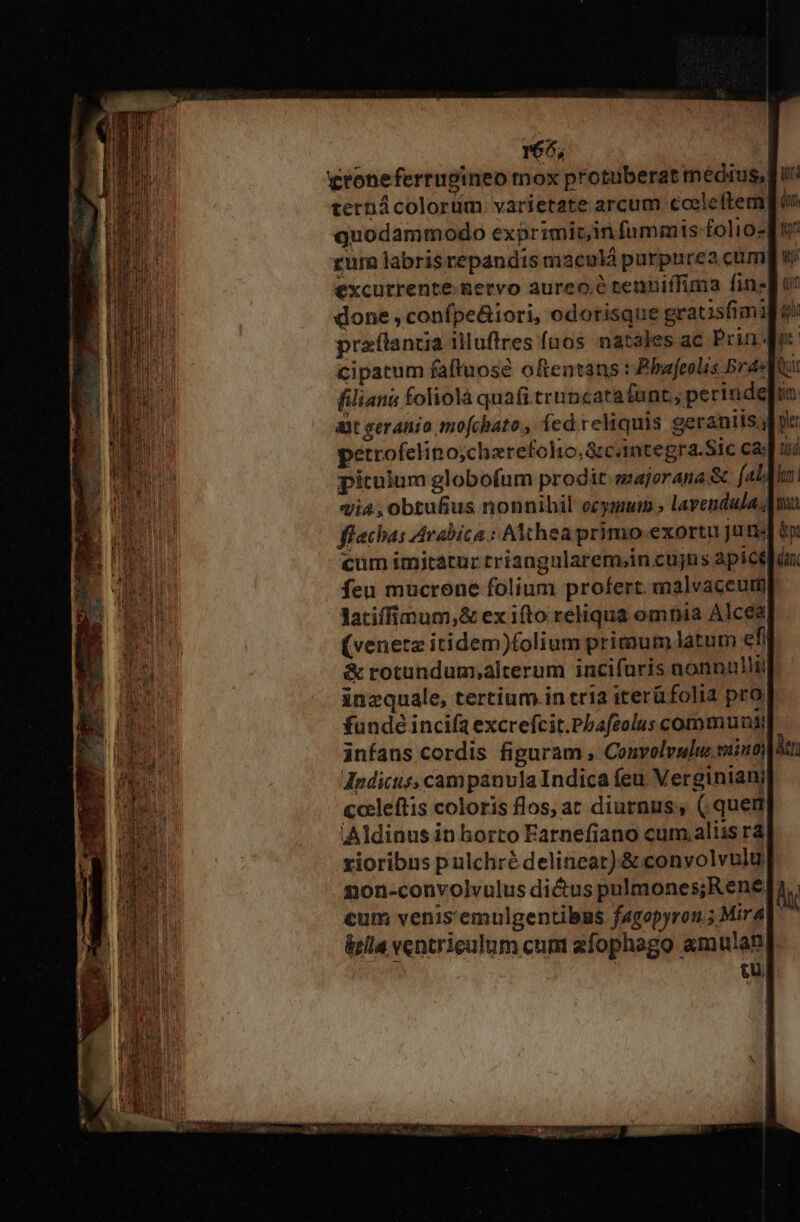 166,
croneferrugineo mox protuberat medius,
ternâ colorum varietate arcum cœleſtem
quodammodo exprimit, in ſummis folio-
rum labris repandis maculâ purpurea cum
excurrente nervo aureo, è tenuiſſima ſin-
done, conſpectiori, odorisque gratisſimi
præſtantia illuſtres ſuos natales ac Prin-
cipatum faſtuosè oſtentans: Phaſeolis Bra-
ſilianis foliola quaſi truncata ſunt, perinde
ut geranio moſchato, ſed reliquis geraniis,
petroſelino, chærefolio, &c. integra. Sic ca-
pitulum globoſum prodit majorana & ſal-
via, obtuſius nonnihil ocymum, lavendula,
ſtæchas Arabica: Althea primo exortu jun-
cum imitatur triangularem, in cujus apice
ſeu mucrone folium profert malvaceum
latiſſimum, & ex iſto reliqua omnia Alcea
(venetæ itidem) folium primum latum eſt
& rotundum, alterum inciſuris nonnulli
inæquale, tertium in tria iterũ folia pro
fundè inciſa excreſcit. Phaſeolus communi
infans cordis figuram, Convolvulus mino
Indicus, campanula Indica ſeu Verginiani
cœleſtis coloris flos, at diurnus, (quem
Aldinus in horto Farneſiano cum aliis ra
rioribus pulchrè delineat) & convolvulu
non-convolvulus dictus pulmones; Rene
cum venis emulgentibus fagopyron; Mira
bilis ventriculum cum æſophago æmulan
tu